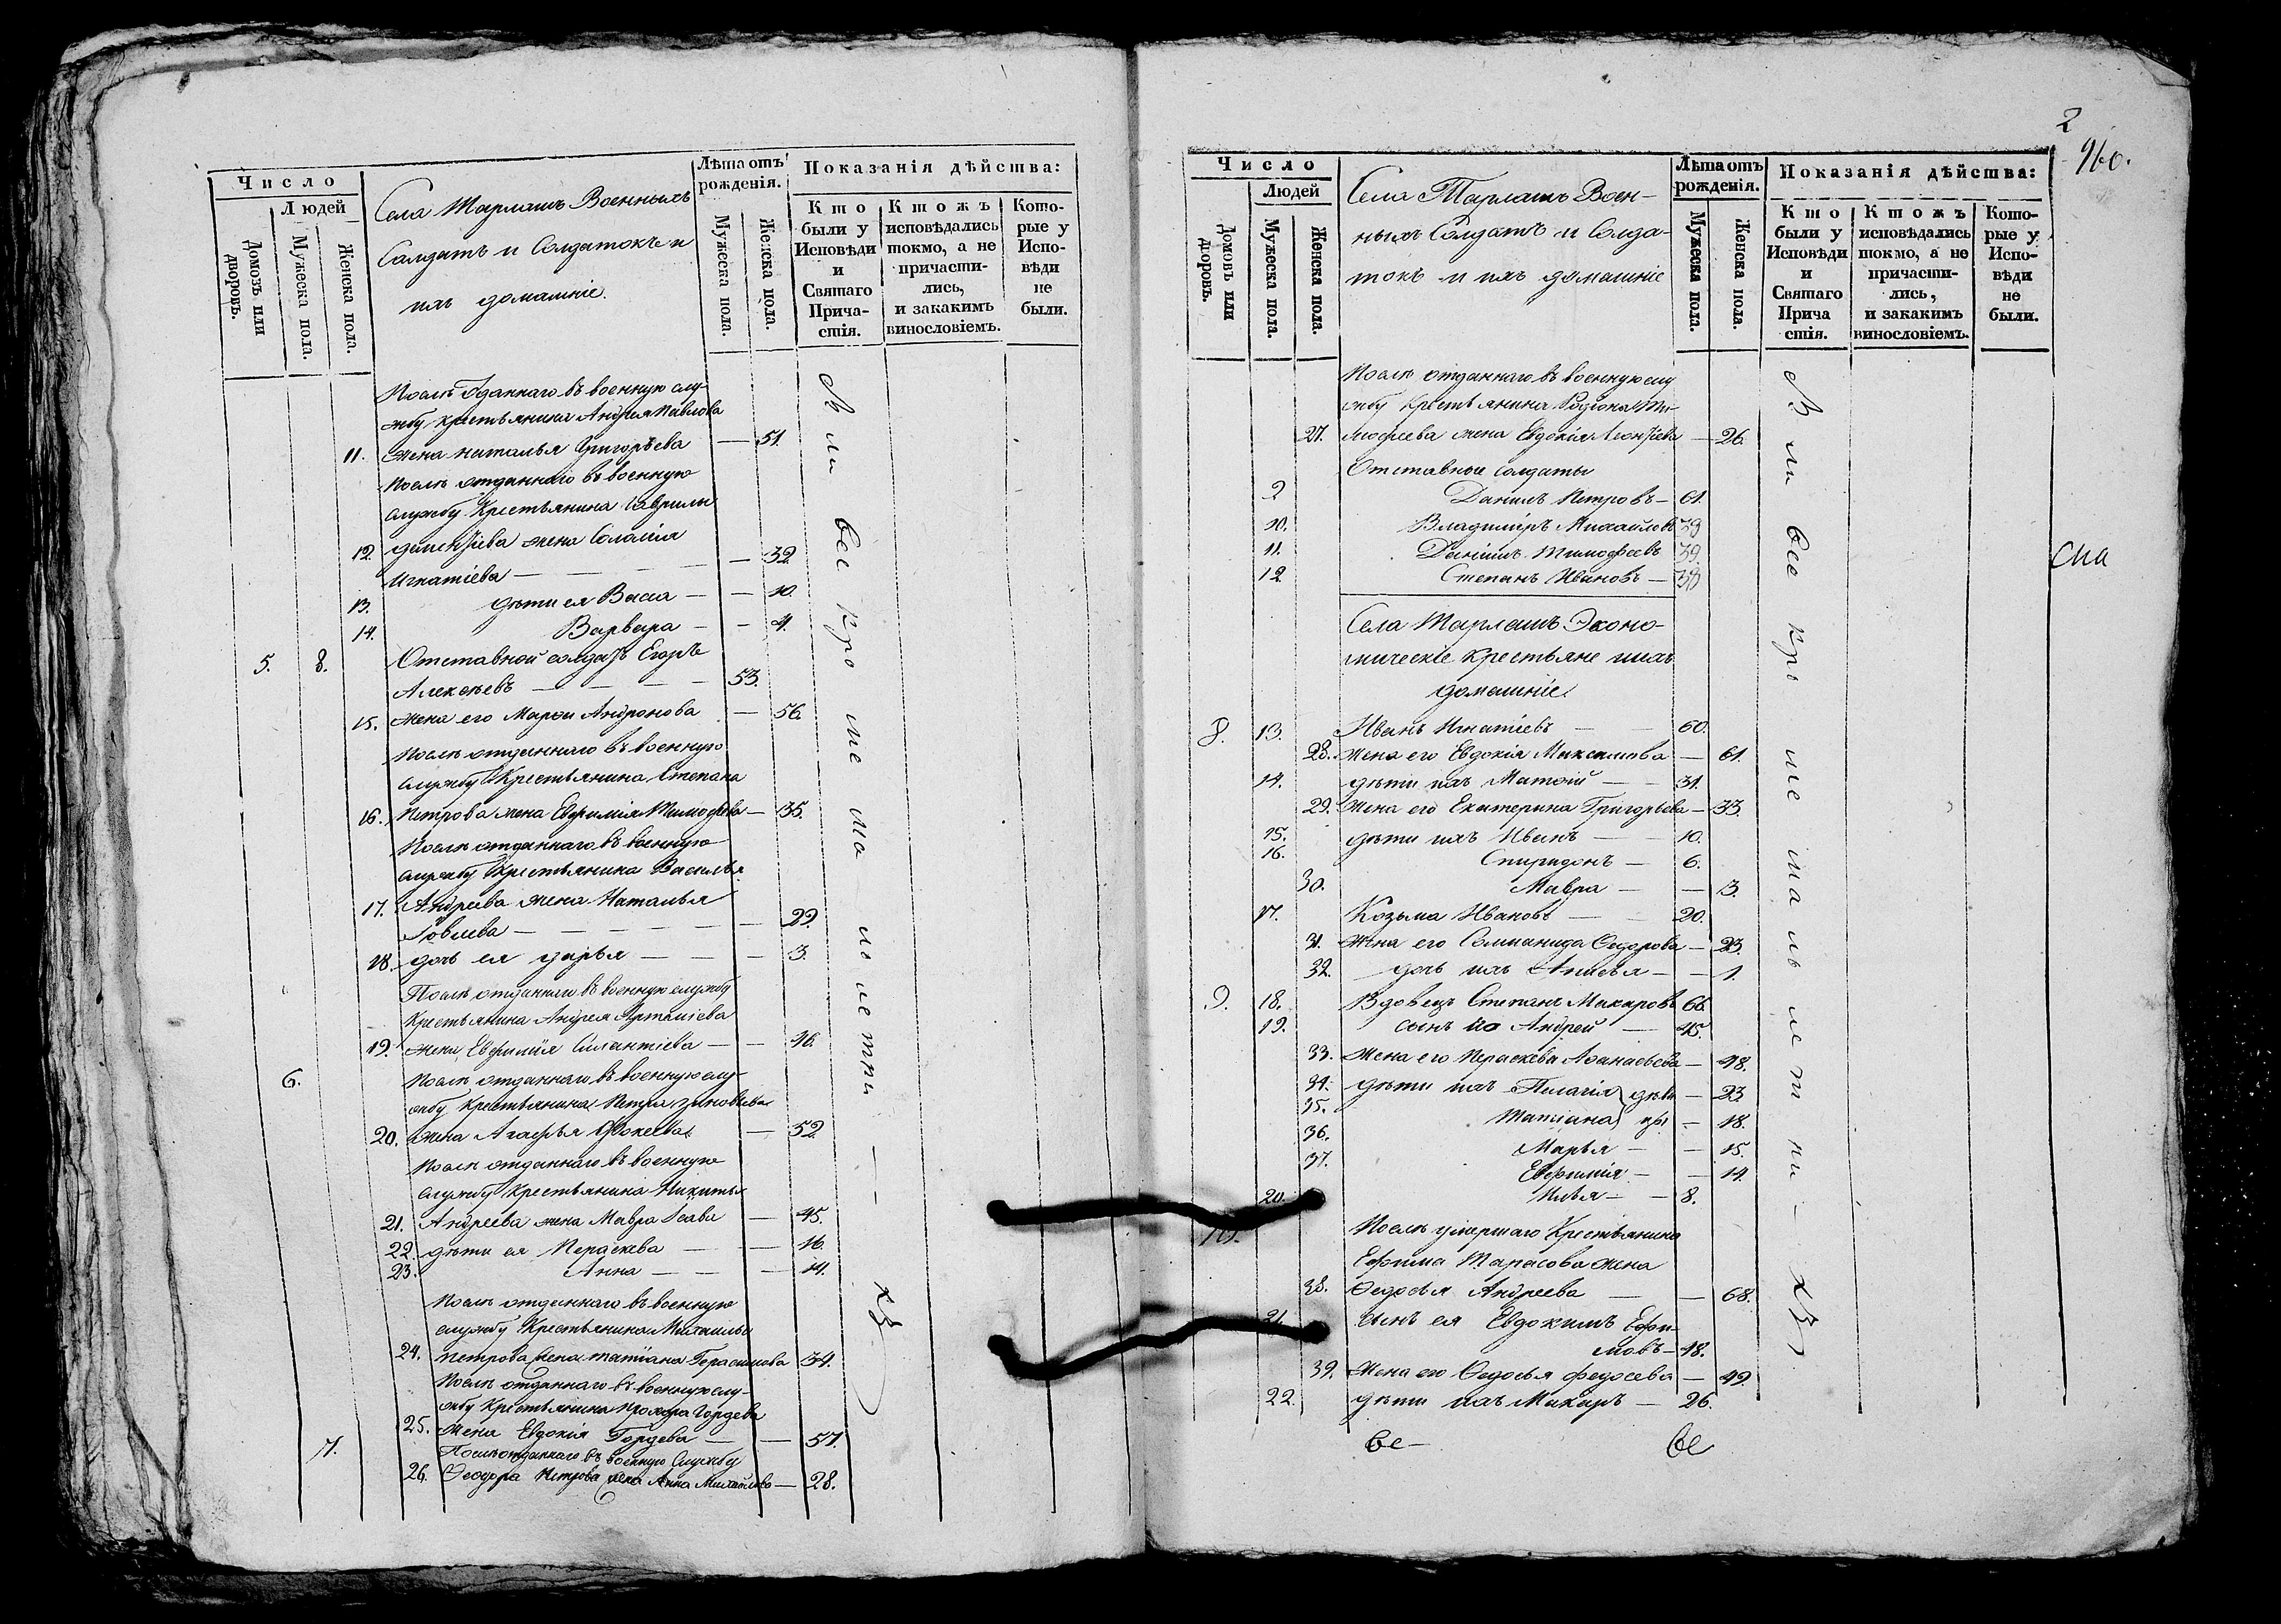 Число
Людей
Домовъ или дворовъ.
Мужеска пола.
Женска пола.
Села Тарлашъ Военныхъ
Солдатъ и Солдатокъ и
ихъ домашніе.
Лѣта отъ рожденія.
Мужеска пола.
Женска пола.
Показанія дѣйства:
Кто были у Исповѣди и Святаго Прича-стія.
Ктожъ исповѣдались токмо, а не причасти-лись, и закакимъ винословіемъ.
Кото-рые у Испо-вѣди не были.
Послѣ отданнаго въ военную слу-
жбу крестьянина Андрея Павлова
11. жена Наталья Григорьева — 51.
Послѣ отданнаго въ военную
службу Крестьянина Гаврилы
12. Дементіева жена Соломія
Игнатіева — 32.
13. дѣти ея Васса — — 10.
14. Варвара — — 4.
5. 8. Отставной солдатъ Егоръ
Алексѣевъ — — — 53.
15. жена его Марфа Андронова — 56.
Послѣ отданнаго въ военную
службу Крестьянина Степана
16. Петрова жена Евфимія Тимофѣева — 35.
Послѣ отданнаго въ военную
службу Крестьянина Василья
17. Андреева жена Наталья
Іовлева — — — — 29.
18. дочь ея Дарья — — — 3.
Послѣ отданнаго въ военную службу
Крестьянина Андрея
19. жена Евфимія Силантіева — — 46.
6. Послѣ отданнаго въ военную слу-
жбу Крестьянина Петра Зиновьева
20. жена Агафья Фокеева — 52.
Послѣ отданнаго въ военную
службу Крестьянина Никиты
21. Андреева жена Мавра — 45.
22. дѣти ея Параскева — — 16.
23. Анна — — — 14.
Послѣ отданнаго въ военную
службу Крестьянина Михайлы
24. Петрова жена Татіана Герасимова 34.
Послѣ отданнаго въ военную слу-
жбу Крестьянина Прохора Гордева
7. 25. жена Евдокія Гордева — — 57.
Послѣ отданнаго въ военную Службу
26. Ѳеодора Петрова жена Анна Михайлова — 28.
все кроме ма ло летни
2
960.
Число
Людей
Домовъ или дворовъ.
Мужеска пола.
Женска пола.
Села Тарлашъ Воен-
ныхъ Солдатъ и Солда-
токъ и ихъ домашніе
Лѣта отъ рожденія.
Мужеска пола.
Женска пола.
Показанія дѣйства:
Кто были у Исповѣди и Святаго Прича стія.
Ктожъ исповѣдались токмо, а не причасти-лись, и закакимъ винословіемъ.
Кото-рые у Испо-вѣди не были.
Послѣ отданнаго въ военную слу
жбу Крестьянина Родіона Ти-
27. мофеева жена Евдокія Леонтіева — 26.
Отставные солдаты
9 Данилъ Петровъ — 61.
10. Владиміръ Михайловъ 39
11. Даніилъ Тимофеевъ 39.
12 Степанъ Ивановъ — 39
Села Тарлашъ Эконо-
мическіе крестьяне и ихъ
домашніе.
8. 13. Иванъ Игнатіевъ — — 60.
28. Жена его Евдокія Максимова — 61.
14. дѣти ихъ Матѳій — — 31.
29. Жена его Екатерина Григорьева — 33.
15. дѣти ихъ Иванъ — — 10.
16. Спиридонъ — 6.
30. Мавра — — 3.
17. Козьма Ивановъ — — 20.
31. Жена его Соломанида Ѳедорова — 23.
32. дочь ихъ Анисья — — 1.
9. 18. Вдовецъ Степанъ Макаровъ 66.
19. сынъ его Андрей — 45.
33. Жена его Параскева Аѳанасьева — 48.
34. дѣти ихъ Пелагія дѣви — 23
35. Татіана цы — 18.
36. Марья — — 15.
37. Евфимія — — 14.
20. Илья — — 8.
10. Послѣ умершаго Крестьянина
Ефима Тарасова жена
38. Ѳедосья Андреева — — 68.
21. сынъ ея Евдокимъ Ефи-
мовъ — 48.
39. Жена его Ѳедосья Федосева — 49.
22. дѣти ихъ Макаръ — 26.
все кро ме ма ло лет ни